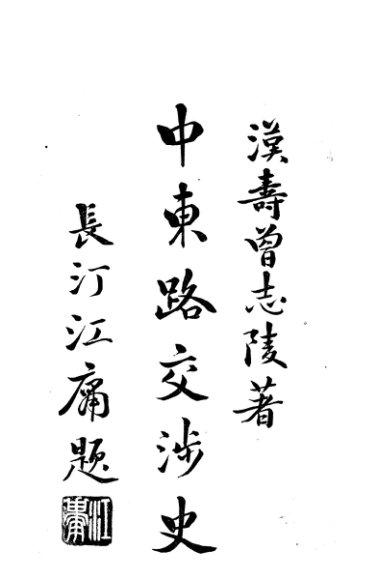 漢壽曾志陵著
中東路交涉史
長汀江庸題
江庸